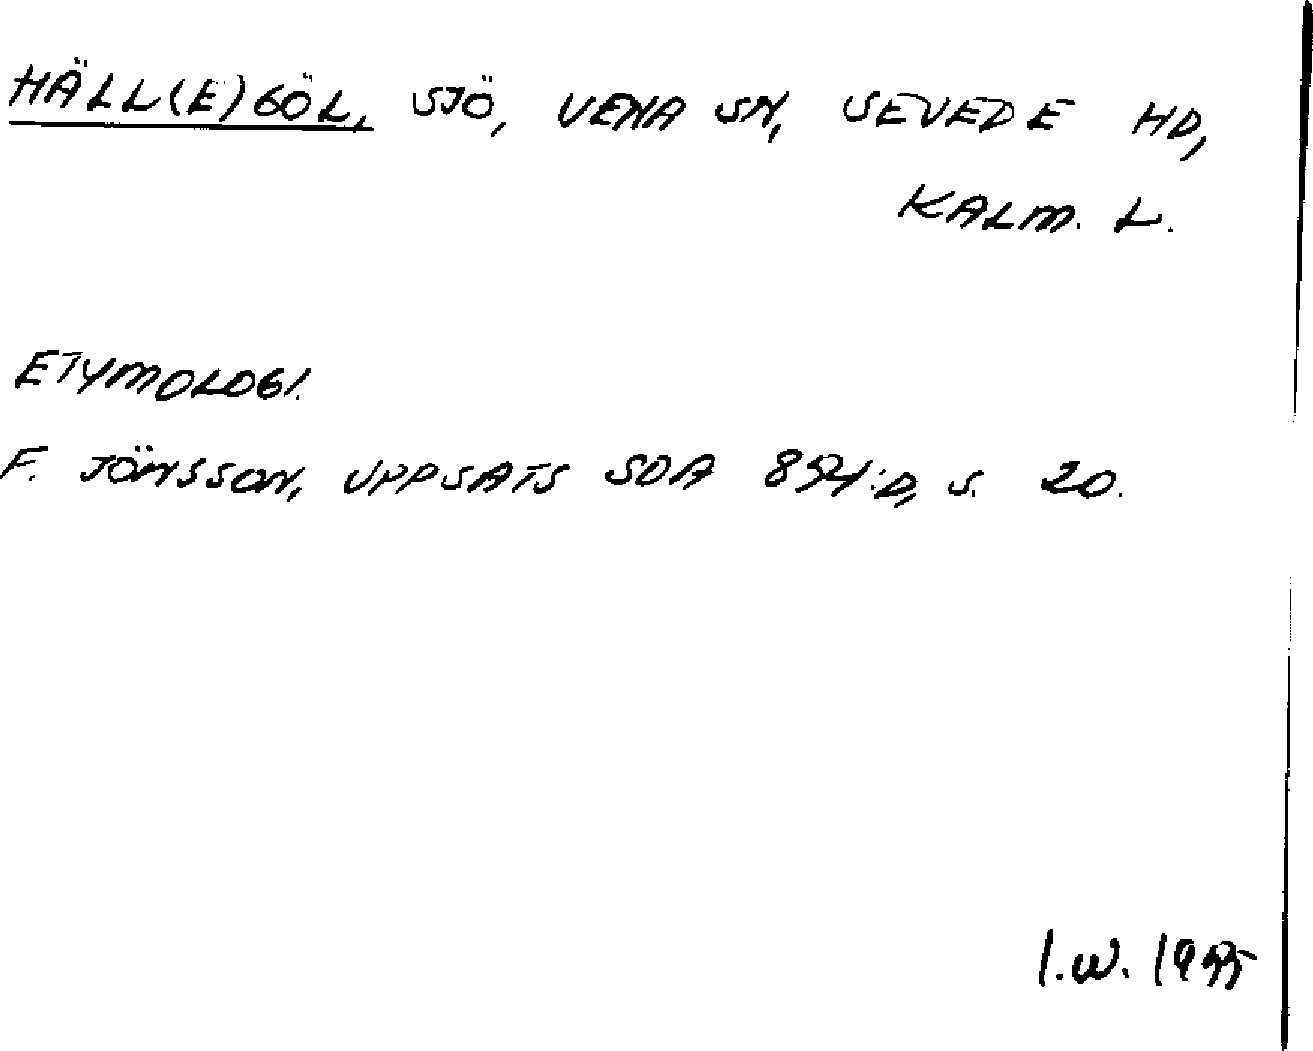 HÄLL(E)GÖL, SJÖ, VENA SN, SEVEDE HD,
KALM. L.
ETYMOLOGI.
F. JÖNSSON, UPPSATS SOA 854:D, S. 20.
I.W.